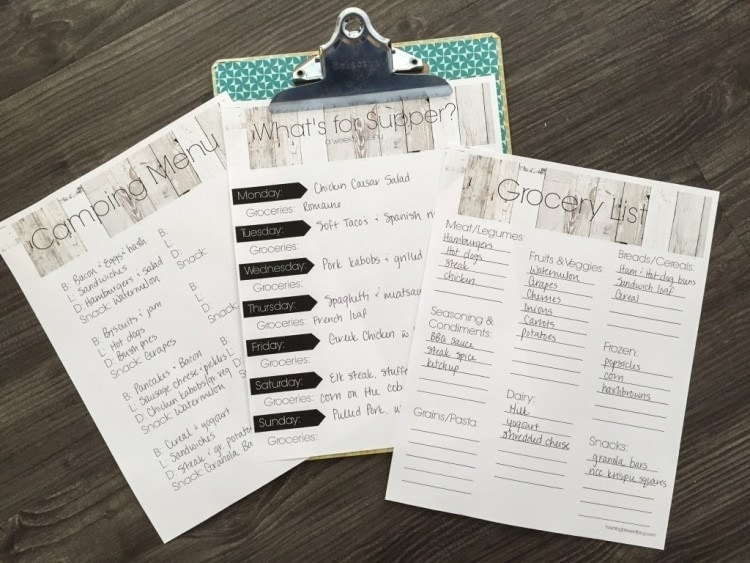 Camping Menu
B: Bacon & Eggs & hash
L: Sandwiches
D: Hamburgers & salad
Snack: Watermelon
B: Biscuits & jam
L: Hot dogs
D: Bush pies
Snack: Grapes
B: Pancakes & Bacon
L: Sausage cheese & pickles
D: Chicken kabobs (or veg
Snack: Watermelon
B: Cereal & yogurt
L: Sandwiches
D: Steak & gr. potato
Snack: Granola Ba
B:
L:
D:
Snack:
B:
L:
D:
Snack
B:
L:
D:
Snack
B:
L:
D:
What's for Supper?
a weekly menu
Monday: Chicken Caesar Salad
Groceries: Romaine
Tuesday: Soft Taco's & Spanish
Groceries:
Wednesday: Pork kabobs & grilled
Groceries:
Thursday: Spaghetti & meatsau
Groceries: French loaf
Friday: Greek Chicken w
Groceries:
Saturday: Elk steak, stuffe
Groceries: corn on the cob
Sunday: Pulled Pork, w
Groceries:
Grocery List
Meat/Legumes:
Hamburgers
Hot dogs
steak
chicken
Seasoning &
Condiments:
BBQ sauce
steak spice
ketchup
Grains/Pasta:
Fruits & Veggies:
Watermelon
Grapes
Cherries
onions
Carrots
potatoes
Dairy:
Milk
yogurt
shredded cheese
Breads/Cereals:
Ham & Hot dog buns
Sandwich loaf
Cereal
Frozen:
popsicles
corn
hashbrowns
Snacks:
granola bars
rice krispie squares